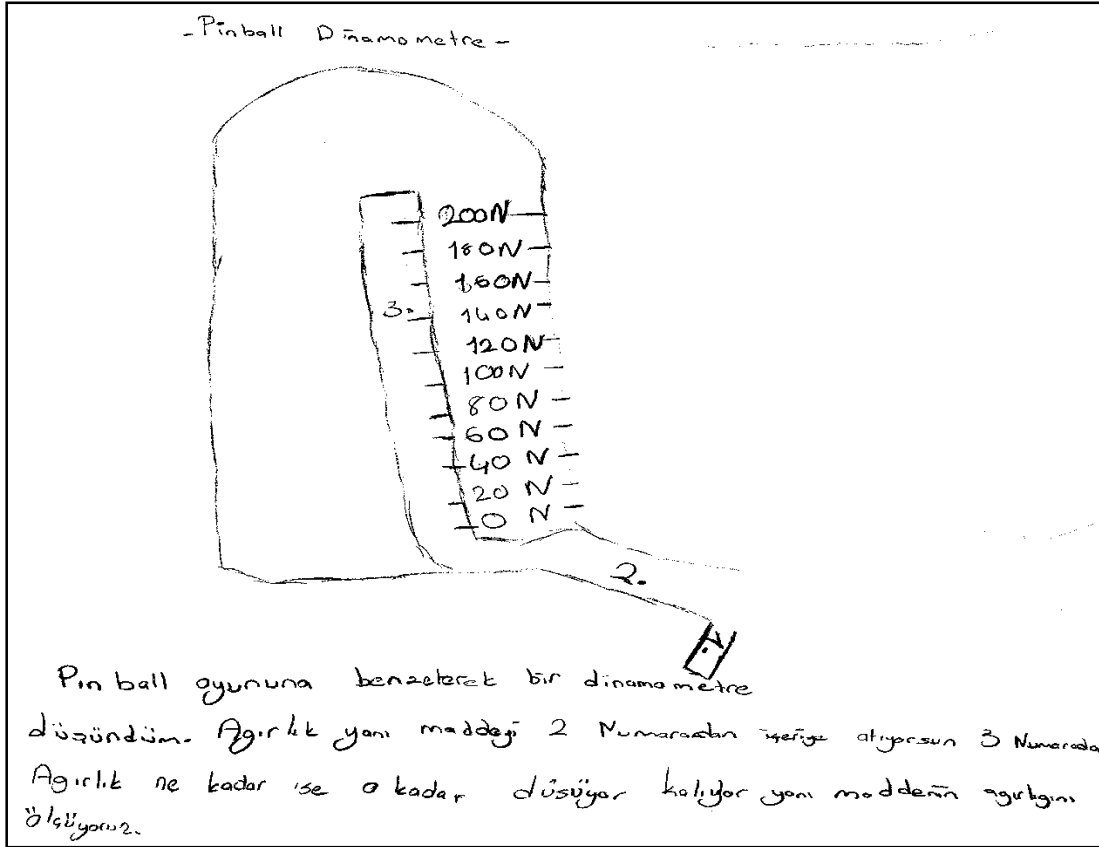 -Pinball Dinamometre-
200N
180N
160N
3. 140N
120N
100N
80N
60N
40N
20 N
0 N
2.
1.
Pinball oyununa benzeterek bir dinamometre
düşündüm. Agırlık yanı maddeyi 2 Numaradan içeriye atıyorsun 3 Numarada
Agırlık ne kadar ise o kadar düsüyor kalıyor yanı maddenin agırlıgını
ölçüyoruz.